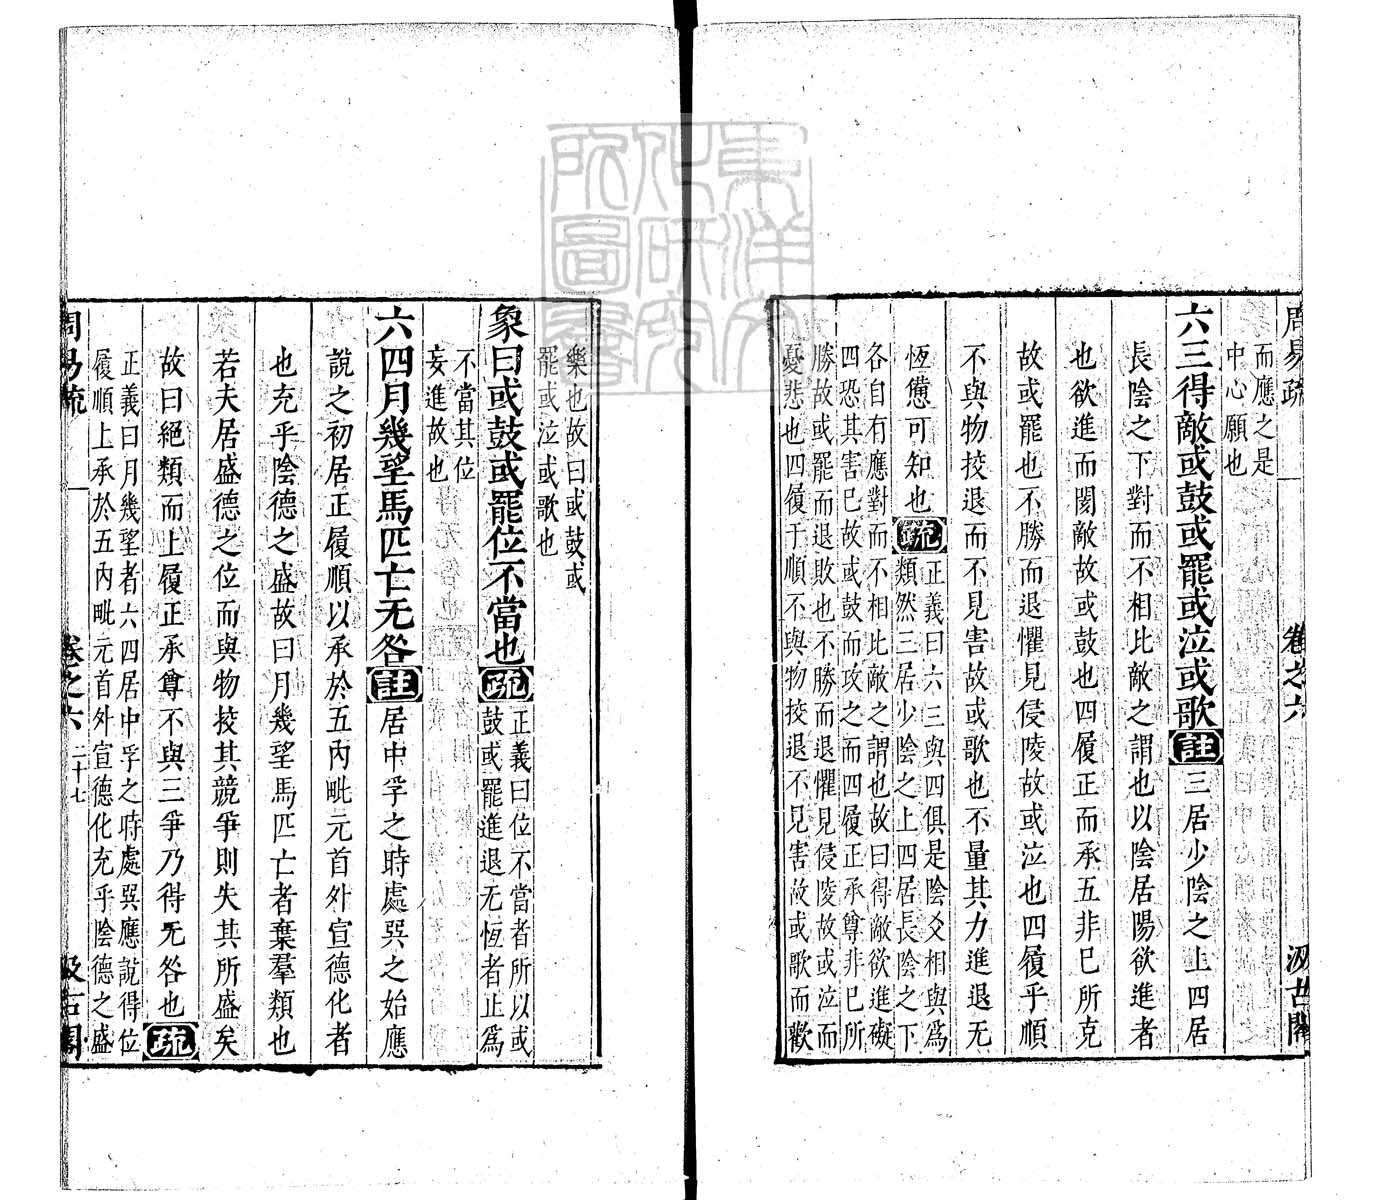 周易疏 卷之六 汲古閣
而應之是
中心願也
六三得敵或鼓或罷或泣或歌註三居少陰之上四居
長陰之下對而不相比敵之謂也以陰居陽欲進者
也欲進而閡敵故或鼓也四履正而承五非已所克
故或罷也不勝而退懼見侵陵故或泣也四履乎順
不與物挍退而不見害故或歌也不量其力進退无
恆憊可知也疏
正義曰六三與四俱是陰爻相與爲
類然三居少陰之上四居長陰之下
各自有應對而不相比敵之謂也故曰得敵欲進礙
四恐其害已故或鼓而攻之而四履正承尊非已所
勝故或罷而退敗也不勝而退懼見侵陵故或泣而
憂悲也四履于順不與物挍退不見害故或歌而歡
樂也故曰或鼓或
罷或泣或歌也
象曰或鼓或罷位不當也疏
正義曰位不當者所以或
鼓或罷進退无恆者止爲
不當其位
妄進故也
六四月幾望馬匹亡无咎註居中孚之時處巽之始應
說之初居正履順以承於五內毗元首外宣德化者
也充乎陰德之盛故曰月幾望馬匹亡者棄羣類也
若夫居盛德之位而與物挍其競爭則失其所盛矣
故曰絕類而上履正承尊不與三爭乃得无咎也疏
正義曰月幾望者六四居中孚之時處巽應說得位
履順上承於五內毗元首外宣德化充乎陰德之盛
周易疏 卷之六 二十七 汲古閣
東洋文化研究所圖書